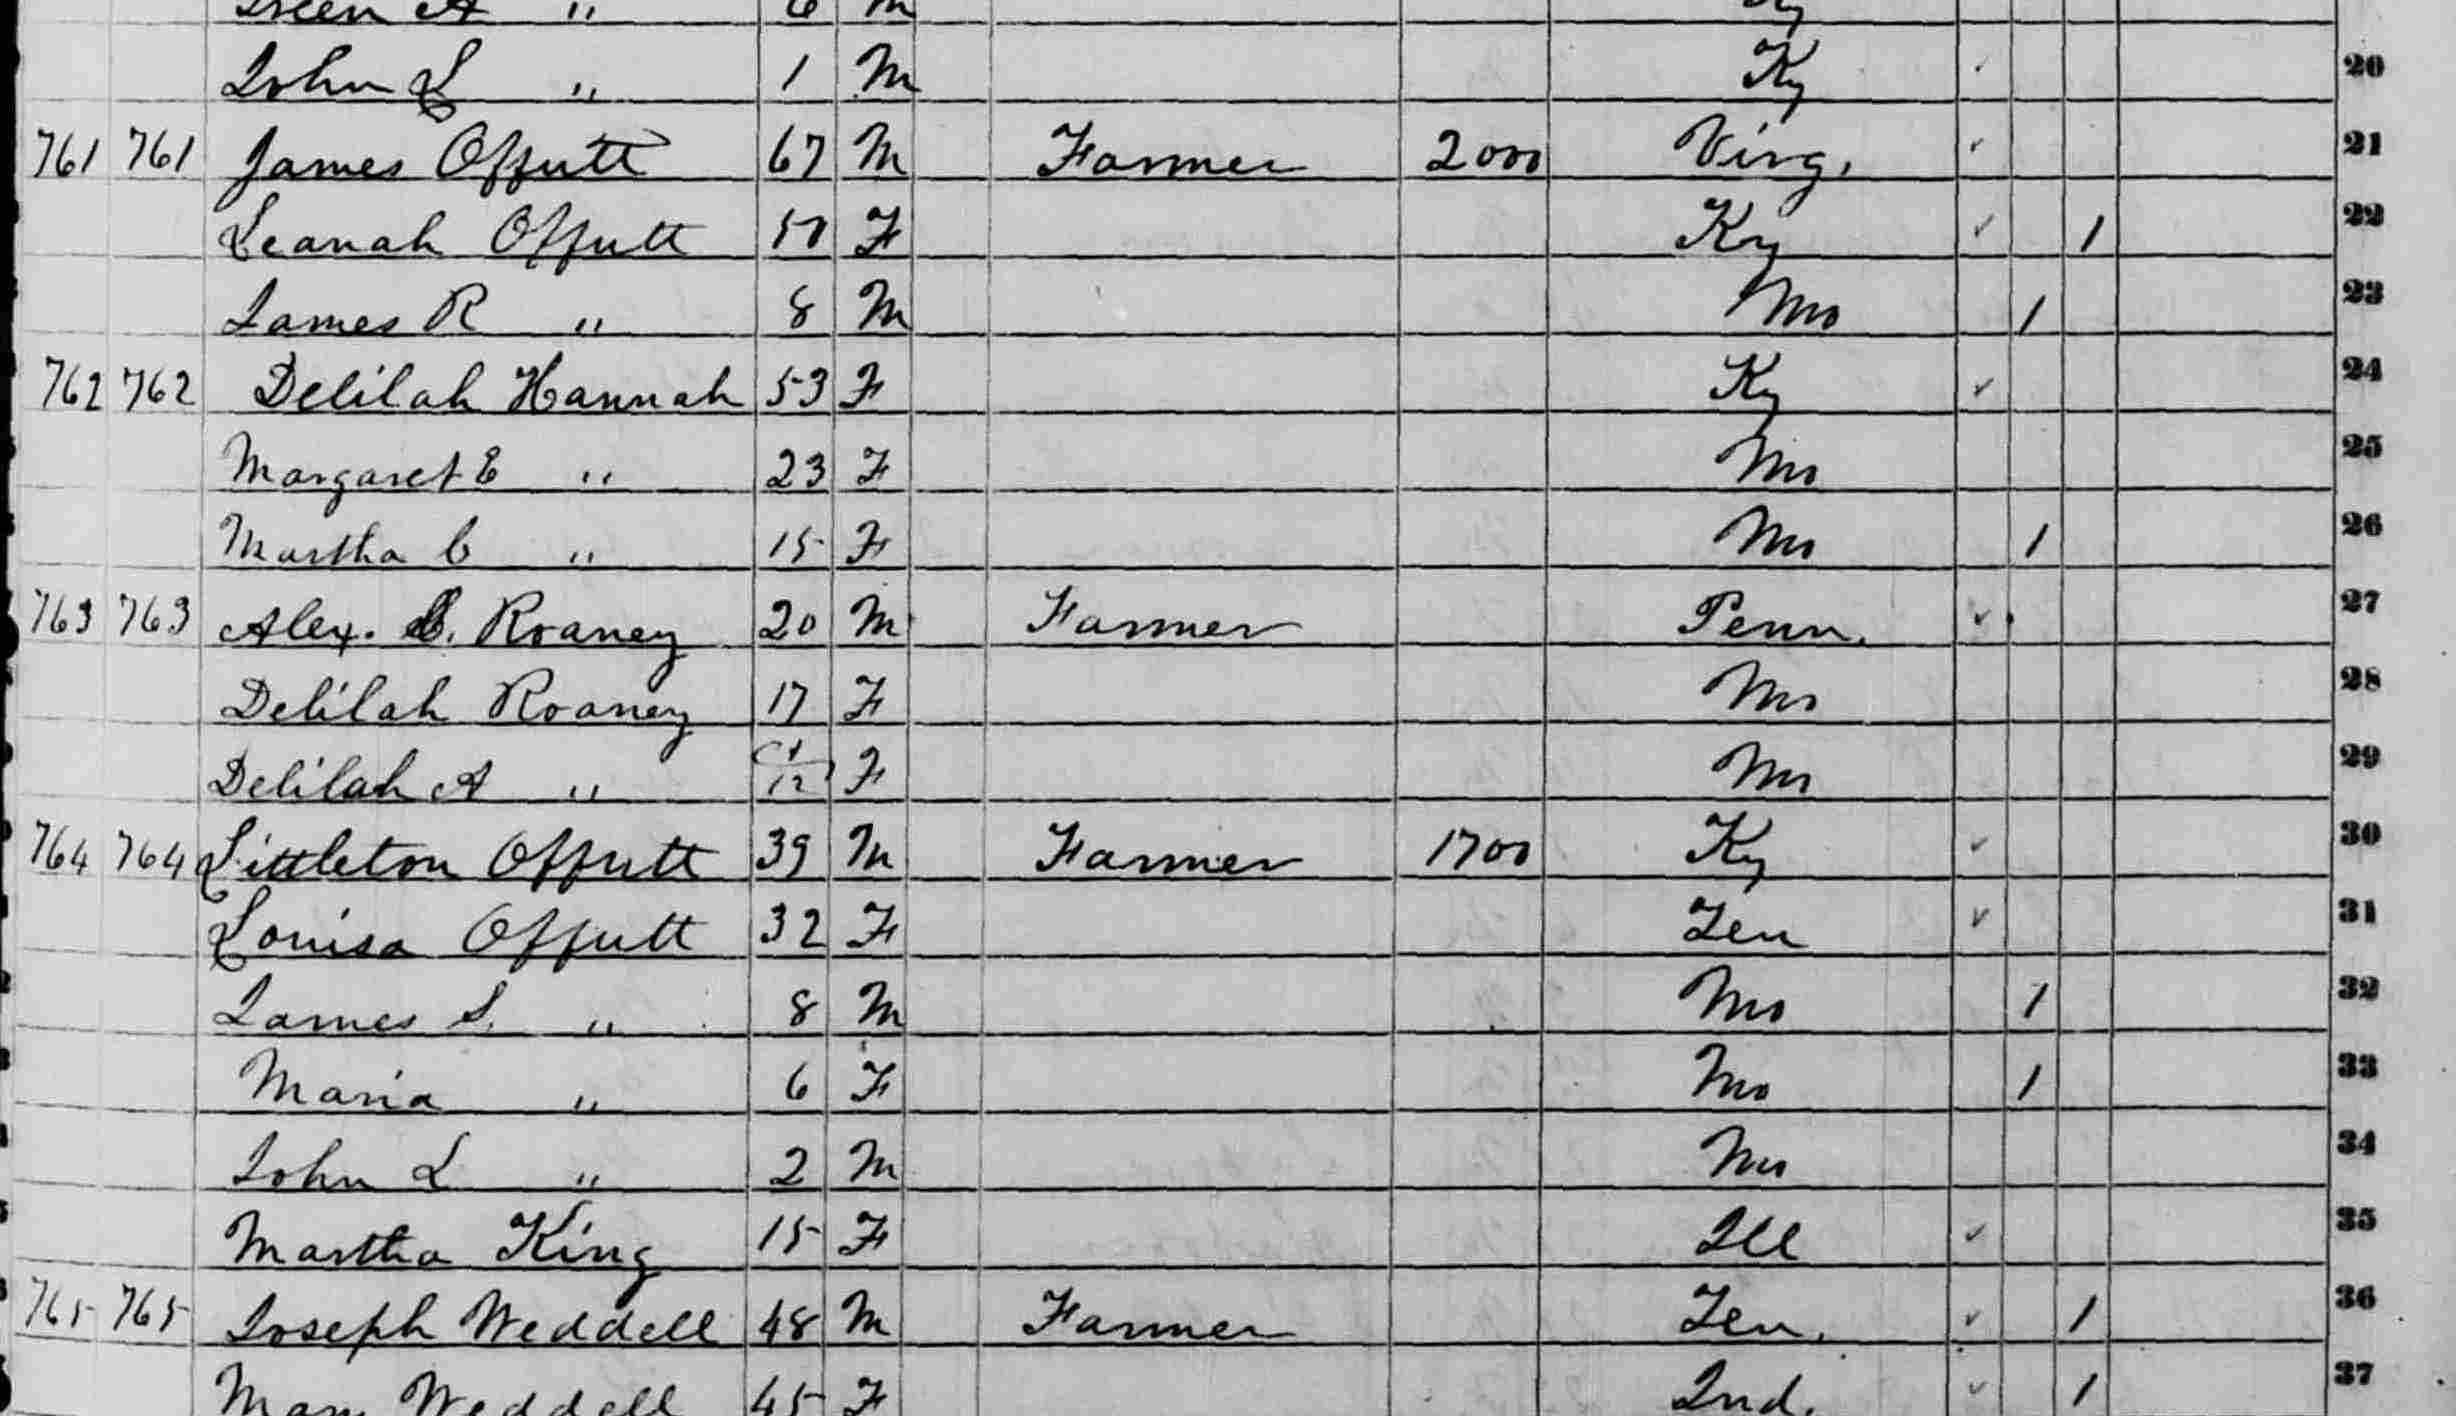 A " 6 M Ky
John L " 1 M Ky 20
761 761 James Offutt 67 M Farmer 2000 Virg. 21
Leanah Offutt F Ky 1 22
James R " 8 M Mo 1 23
762 762 Delilah Hannah 53 F Ky 24
Margaret E " 23 F Mo 25
Martha C " 15 F Mo 1 26
763 763 Alex. Roaney 20 M Farmer Penn. 27
Delilah Roaney 17 F Mo 28
Delilah A " /12 F Mo 29
764 764 Littleton Offutt 39 M Farmer 1700 Ky 30
Louisa Offutt 32 F Ten 31
James S. " 8 M Mo 1 32
Maria " 6 F Mo 1 33
John L " 2 M Mo 34
Martha King 15 F Ill 35
765 765 Joseph Weddell 48 M Farmer Ten. 1 36
Mary Weddell 45 F Ind. 1 37